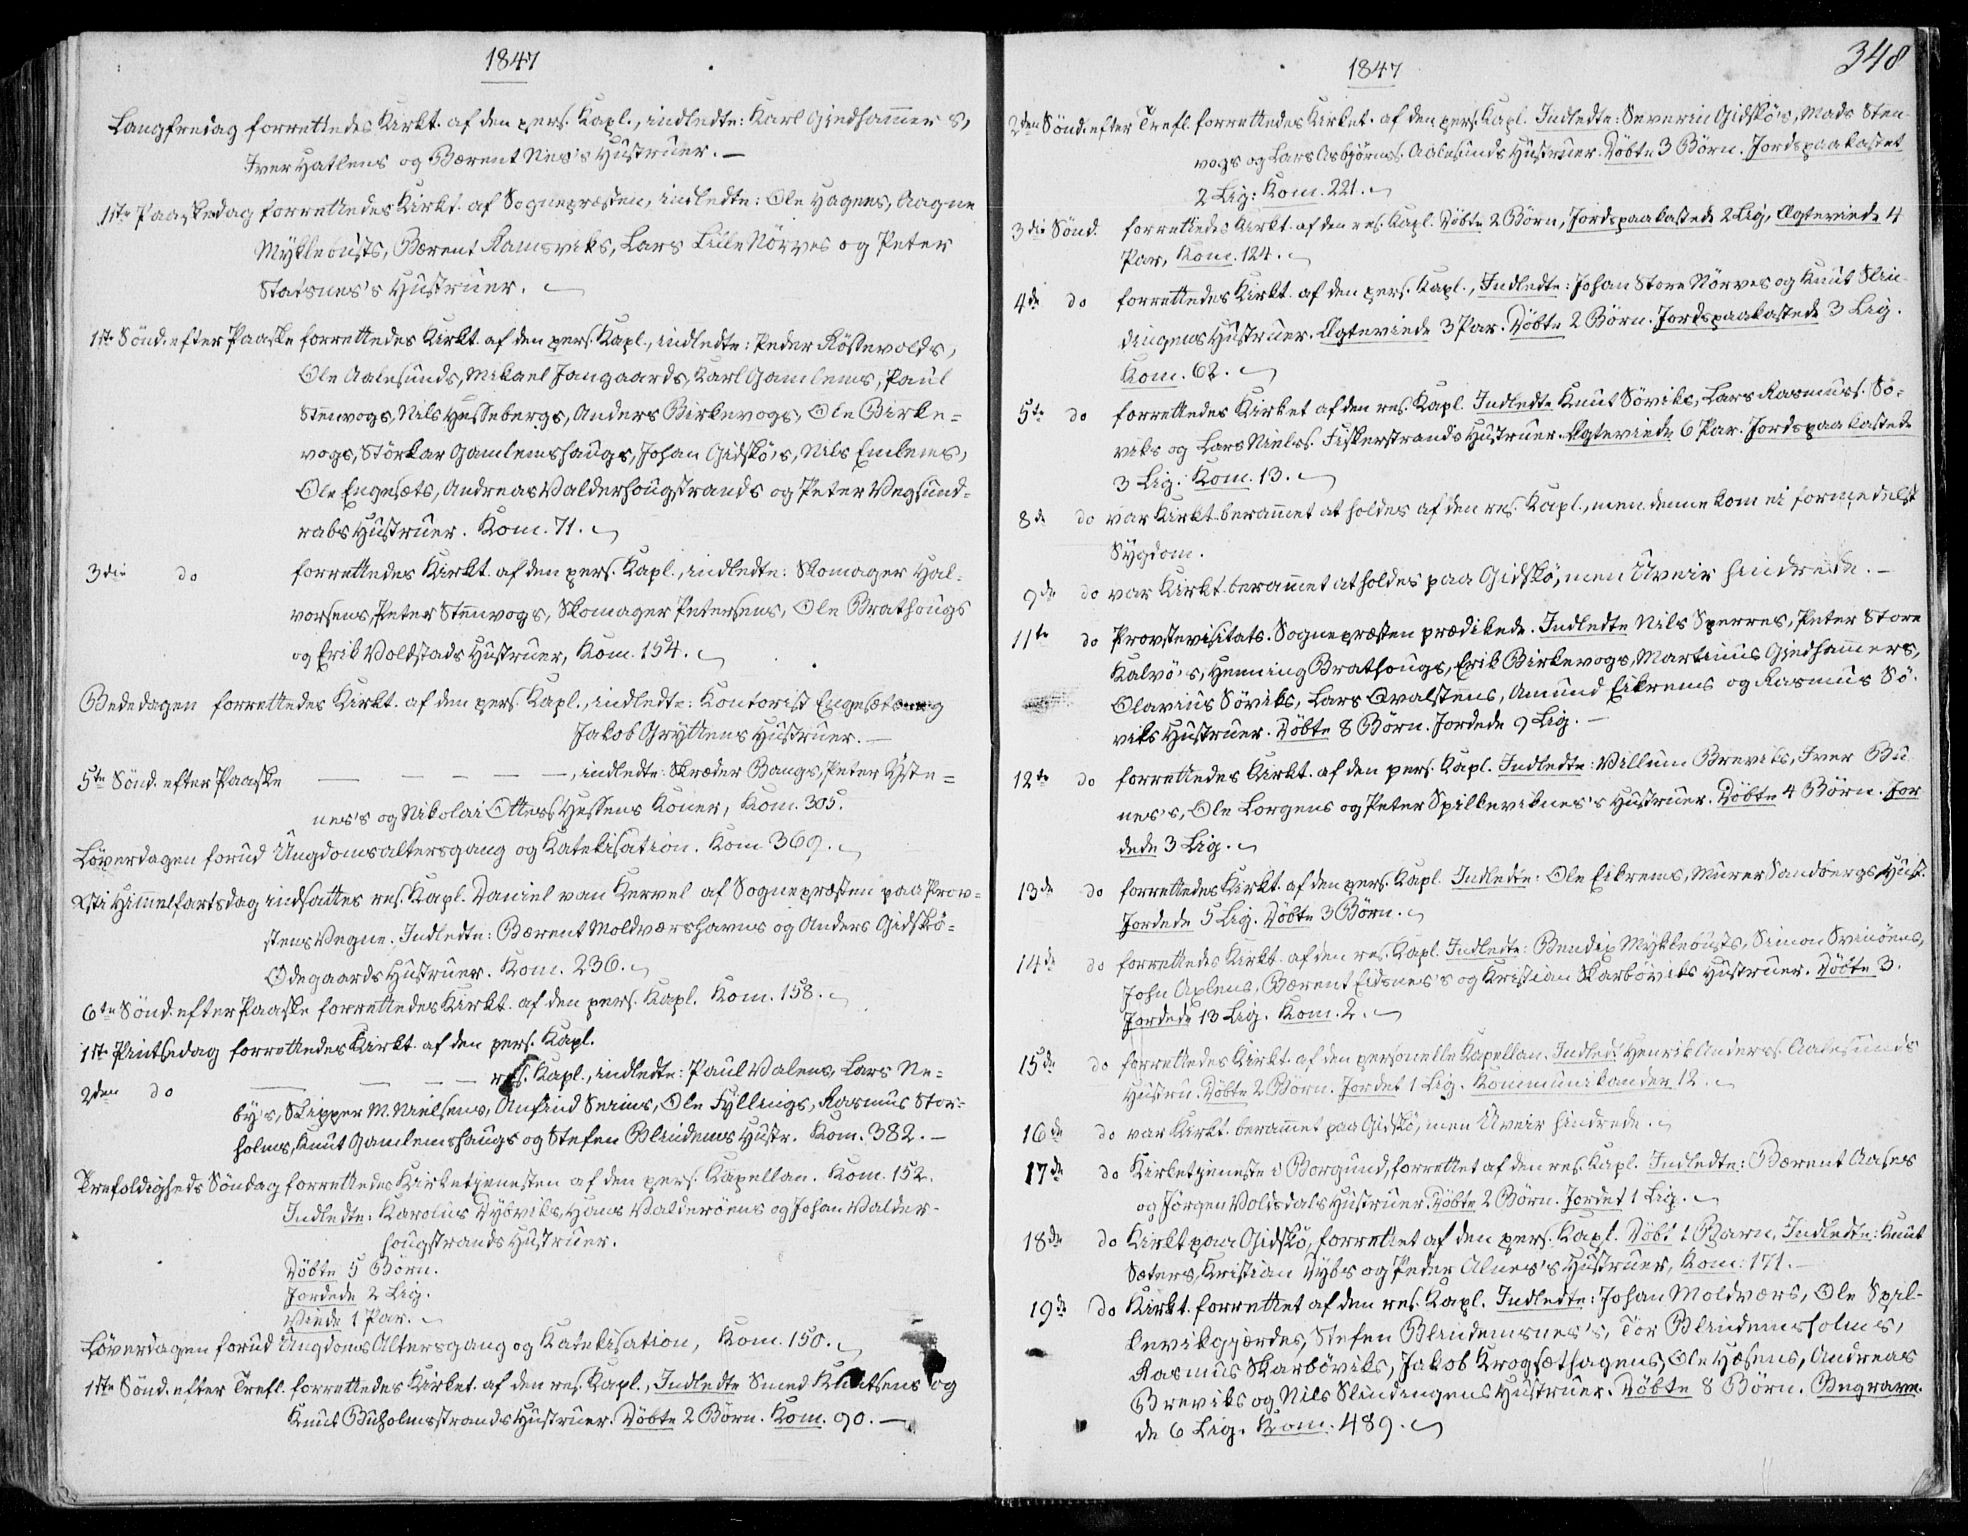 1847
Langfredag forrettedes Kirkt. af den pers. Kapl., indledte: Karl Gjedhammers,
Iver Hatlens og Bærent Nes's Hustruer. —
1ste Paaskedag forrettedes Kirkt. af Sognepræsten, indledte: Ole Hagens, Aagne
Myklebusts, Bærent Ramsviks, Lars Lille Nørves og Peter
Statsnes's Hustruer.
1ste Sönd. efter Paaske forrettedes Kirkt. af den pers. Kapl., indledte: Peder Røssevolds,
Ole Aalesunds, Mikael Jangaards, Karl Gamlems, Paul
Stenvogs, Nils Hessebergs, Anders Birkevogs, Ole Birke=
vogs, Störkar Gamlemshaugs, Johan Gidskö's, Nils Emlems,
Ole Engesæts, Andreas Valderhougstrands og Peter Vegsund=
rabs Hustruer. Kom. 71.
3die do forrettedes Kirkt. af den pers. Kapl., indledte: Skomager Hal=
vorsens, Peter Stenvogs, Skomager Petersens, Ole Brathougs
og Erik Voldstads Hustruer, Kom. 154.
Bededagen forrettedes Kirkt. af den pers. Kapl., indledte: Kontorist Engesæts og
Jakob Gryttens Hustruer. —
5te Sönd. efter Paaske — — — — —, indledte: Skræder Bangs, Peter Yste=
nes's og Nikolai Ottess. Hessens Koner, Kom. 305.
Löverdagen forud Ungdomsaltersgang og Katekisation. Kom 369.
Xsti Himmelfartsdag indsattes res. Kapl. Daniel van Kervel af Sognepræsten paa Prov=
stens Vegne. Indledte: Bærent Moldværshavns og Anders Gidskö=
Ödegaards Hustruer. Kom. 236.
6te Sönd. efter Paaske forrettedes Kirkt. af den pers. Kapl. Kom. 158.
1ste Pintsedag forrettedes Kirkt. af den pers. Kapl.
2den do — — — — res. Kapl., indledte: Paul Valens, Lars Ne=
by's, Skipper M. Nielsens, Anfind Seims, Ole Fyllings, Rasmus Stor=
holms, Knut Gamlemshaugs og Stefen Blindems Hustr. Kom. 382. —
Trefoldigheds Söndag forrettedes Kirketjenesten af den pers. Kapellan. Kom. 152.
Indledte: Karolus Dybviks, Hans Valderöens og Johan Valder-
hougstrands Hustruer.
Döbte 5 Börn.
Jordede 2 Lig.
Viede 1 Par.
Löverdagen forud Ungdoms Altersgang og Katekisation, Kom. 150.
1ste Sönd. efter Trefl. forrettedes Kirket. af den res. Kapl., Indledte Smed Knutsens og
Knut Buholmsstrands Hustruer. Döbte 2 Börn. Kom. 90. —
1847
348
2den Sönd. efter Trefl. forrettedes Kirket. af den pers. Kapl. Indledte: Severin Gidskö's, Mads Sten-
vogs og Lars Asbjörnss. Aalesunds Hustruer. Döbte 3 Börn. Jordspaakastet
2 Lig: Kom. 221.
3die Sönd. forrettedes Kirkt. af den res. Kapl. Döbte 2 Börn, Jordspaakastede 2 Lig, Ægteviede 4
Par, Kom. 124.
4de do forrettedes Kirkt. af den pers. Kapl., Indledte: Johan Store Nörves og Knut Slin-
dingens Hustruer. Ægteviede 3 Par. Döbte 2 Börn. Jordspaakastede 3 Lig.
Kom. 62.
5te do forrettedes Kirket af den res. Kapl. Indledte Knut Söviks, Lars Rasmuss. Sö=
viks og Lars Nielss. Fiskerstrands Hustruer. Ægteviede 6 Par. Jordspaakastede
3 Lig. Kom. 13.
8de do var Kirkt. berammet at holdes af den res. Kapl., men denne kom ei formedelst
Sygdom.
9de do var Kirkt. berammet at holdes paa Gidskö, men Uveir hindrede. —
11te do Provstevisitats. Sognepræsten prædikede. Indledte Nils Sperres, Peter Store
Kalvö's, Henning Brathougs, Erik Birkevogs, Martinus Gjedhammers,
Olavius Söviks, Lars Ovalstens, Amund Eikrems og Rasmus Sö-
viks Hustruer. Döbte 8 Börn. Jordede 9 Lig. —
12te do forrettedes Kirkt. af den pers. Kapl. Indledte: Villum Breviks, Iver Bu
nes's, Ole Lorgens og Peter Spilkeviknes's Hustruer. Döbte 4 Börn. Jor
dede 3 Lig.
13de do forrettedes Kirkt. af den pers. Kapl. Indledte: Ole Eikrems, Murer Sandbergs Hust.
Jordede 5 Lig. Döbte 3 Börn.
14de do forrettedes Kirkt. af den res. Kapl. Indledte: Bendix Myklebusts, Simon Svinöens,
John Axlens, Bærent Eidsnes's og Kristian Skarböviks Hustruer. Döbte 3.
Jordede 13 Lig. Kom. 2.
15de do forrettedes Kirkt. af den personelle Kapellan. Indledt Henrik Anderss. Aalesunds
Hustru. Döbte 2 Börn. Jordet 1 Lig. Kommunikander 12.
16de do var Kirkt. berammet paa Gidskö, men Uveir hindrede.
17de do Kirketjeneste i Borgund, forrettet af den res. Kapl. Indledte: Bærent Aases
og Jörgen Voldsdals Hustruer. Döbte 2 Börn. Jordet 1 Lig.
18de do Kirkt paa Gidskö, forrettet af den pers. Kapl. Döbt 1 Barn, Indledte: Knut
Sæters, Kristian Dybs og Peder Alnes's Hustruer, Kom: 171. —
19de do Kirkt. forrettet af den res. Kapl. Indledte: Johan Moldværs, Ole Spil-
kevikgjerdes, Stefen Blindemsnes's, Tor Blindemsholms,
Rasmus Skarböviks, Jakob Krogsæthagens, Ole Hæsens, Andreas
Breviks og Nils Slindingens Hustruer. Döbte 8 Börn. Begrave-
de 6 Lig. Kom. 489.